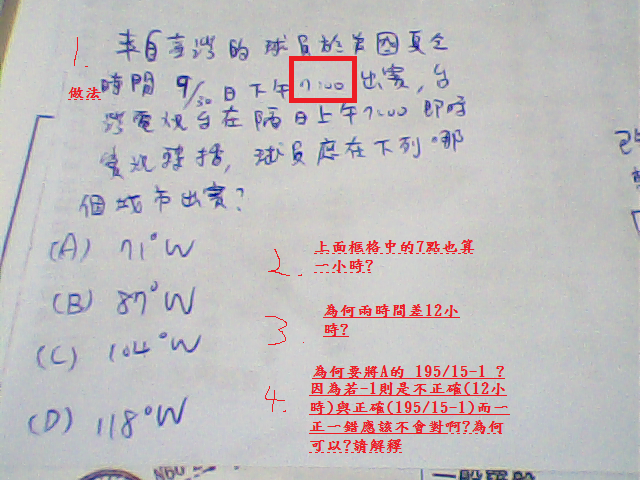 1. 來自臺灣的球員於美國夏令
時間 9/30日下午7:00出賽,台
灣電視台在隔日上午7:00即時
實況轉播,球員應在下列哪
個城市出賽?
做法
(A) 71°W
(B) 87°W
(C) 104°W
(D) 118°W
2. 上面框格中的7點也算
一小時?
3. 為何兩時間差12小
時?
4. 為何要將A的 195/15-1 ?
因為若-1則是不正確(12小
時)與正確(195/15-1)而一
正一錯應該不會對啊?為何
可以?請解釋
一般